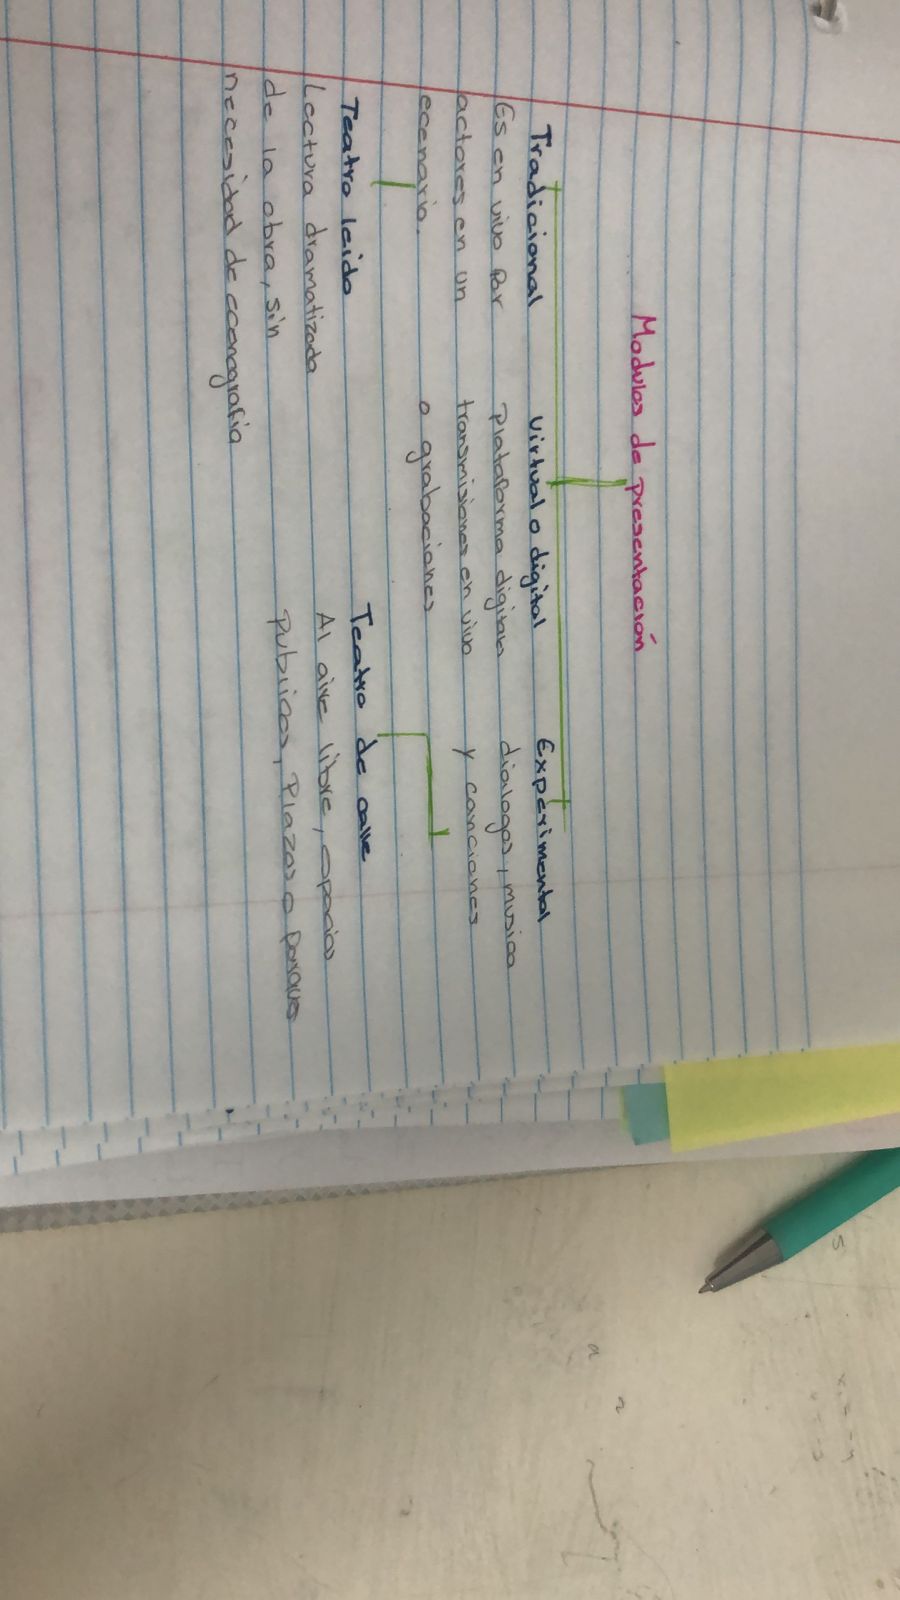 Modulos de presentación
Tradicional
Es en vivo por
actores en un
ecenario.
Virtual o digital
Plataforma digitales
transmisiones en vivo
o grabaciones
Experimental
dialogos, musica
y canciones
Teatro leido
Lectura dramatizada
de la obra, sin
necesidad de cenografia
Teatro de calle
Al aire libre, opacios
publicos, Plazas o parques